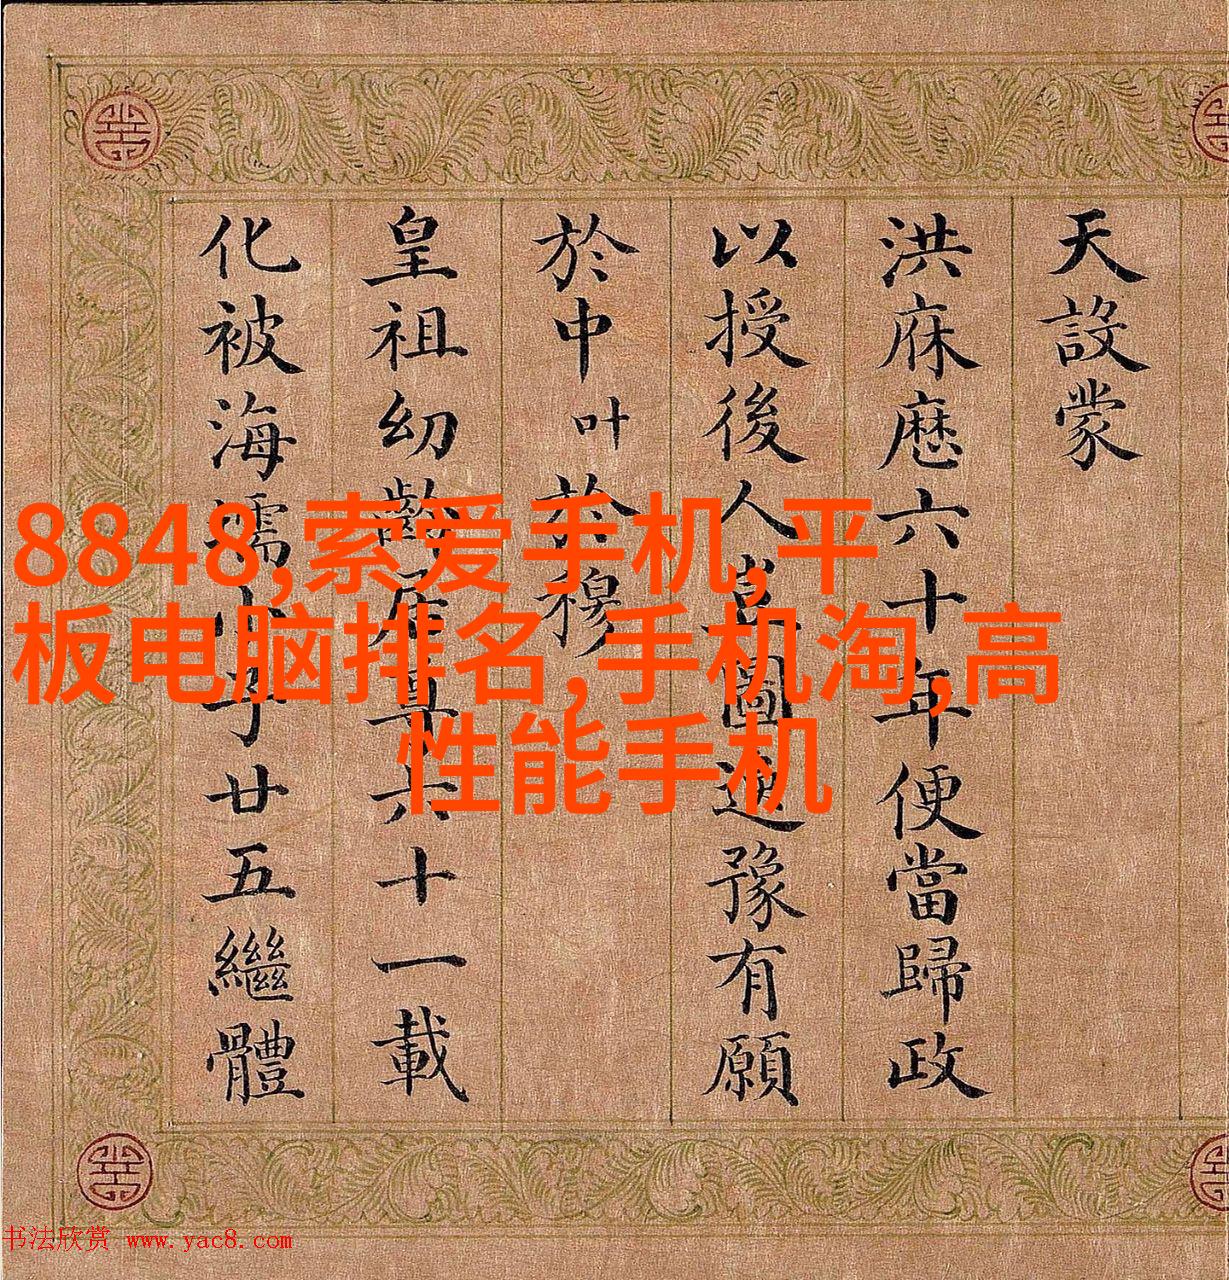 天設蒙
洪庥歷六十年便當歸政
以授後人豈圖豫有願
於中叶於穆
皇祖幼齡居尊六十一載
化被海濡小子廿五繼體
8848,索爱手机,平
板电脑排名,手机淘,高
性能手机
书法欣赏 www.yac8.com